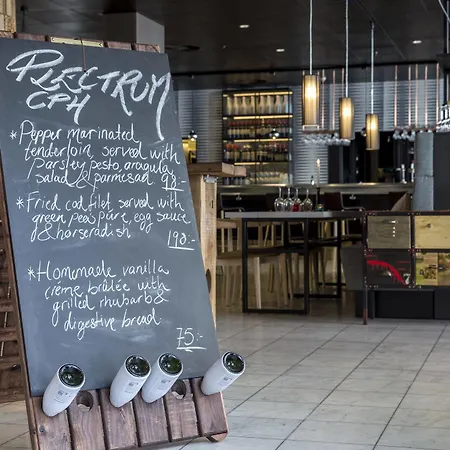 PLECTRUM
CPH
*Pepper marinated
tenderloin, served with
Parsley pesto, arugula
Salad & parmesad. 98,-
*Fried cod filet, served with
green pea pure, egg sauce
& horseradish
190.-
*Homemade vanilla
crème brûlée with
grilled rhubarb &
digestive bread.
75:-